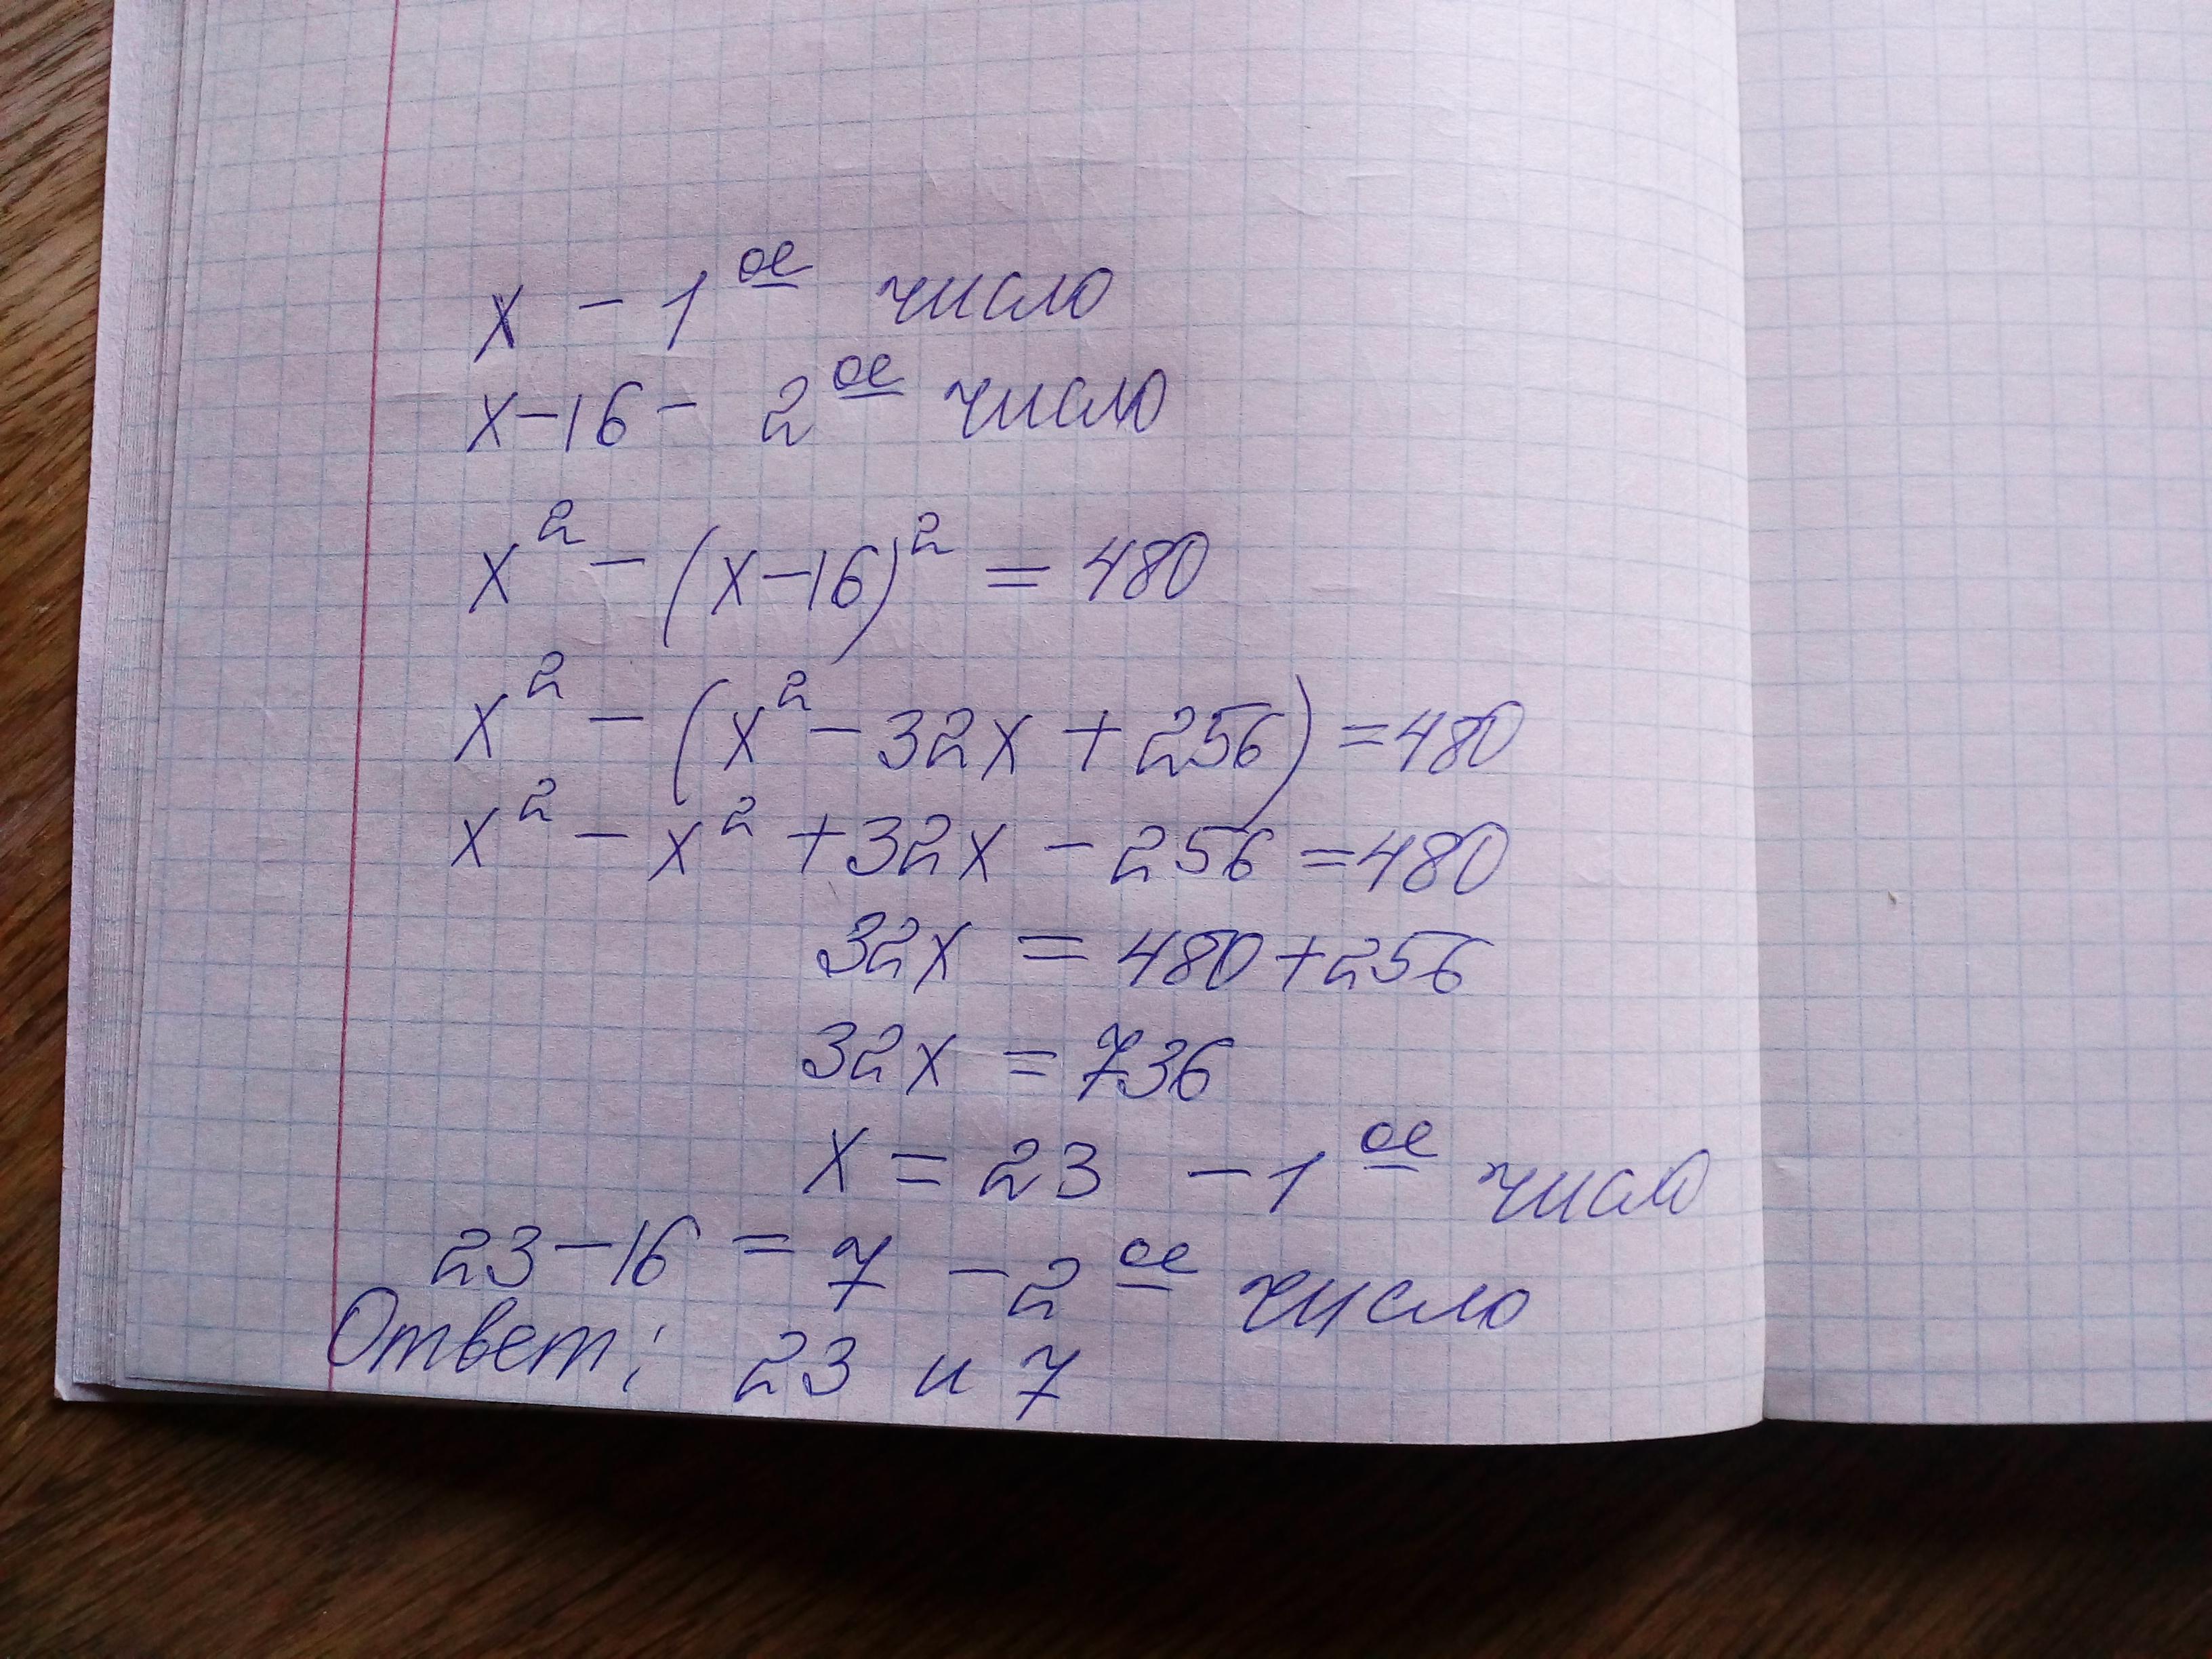 x - 1ое число
x-16 - 2ое число
x² - (x-16)² = 480
x² - (x² - 32x + 256) = 480
x² - x² + 32x - 256 = 480
32x = 480 + 256
32x = 736
x = 23 - 1ое число
23 - 16 = 7 - 2ое число
Ответ: 23 и 7